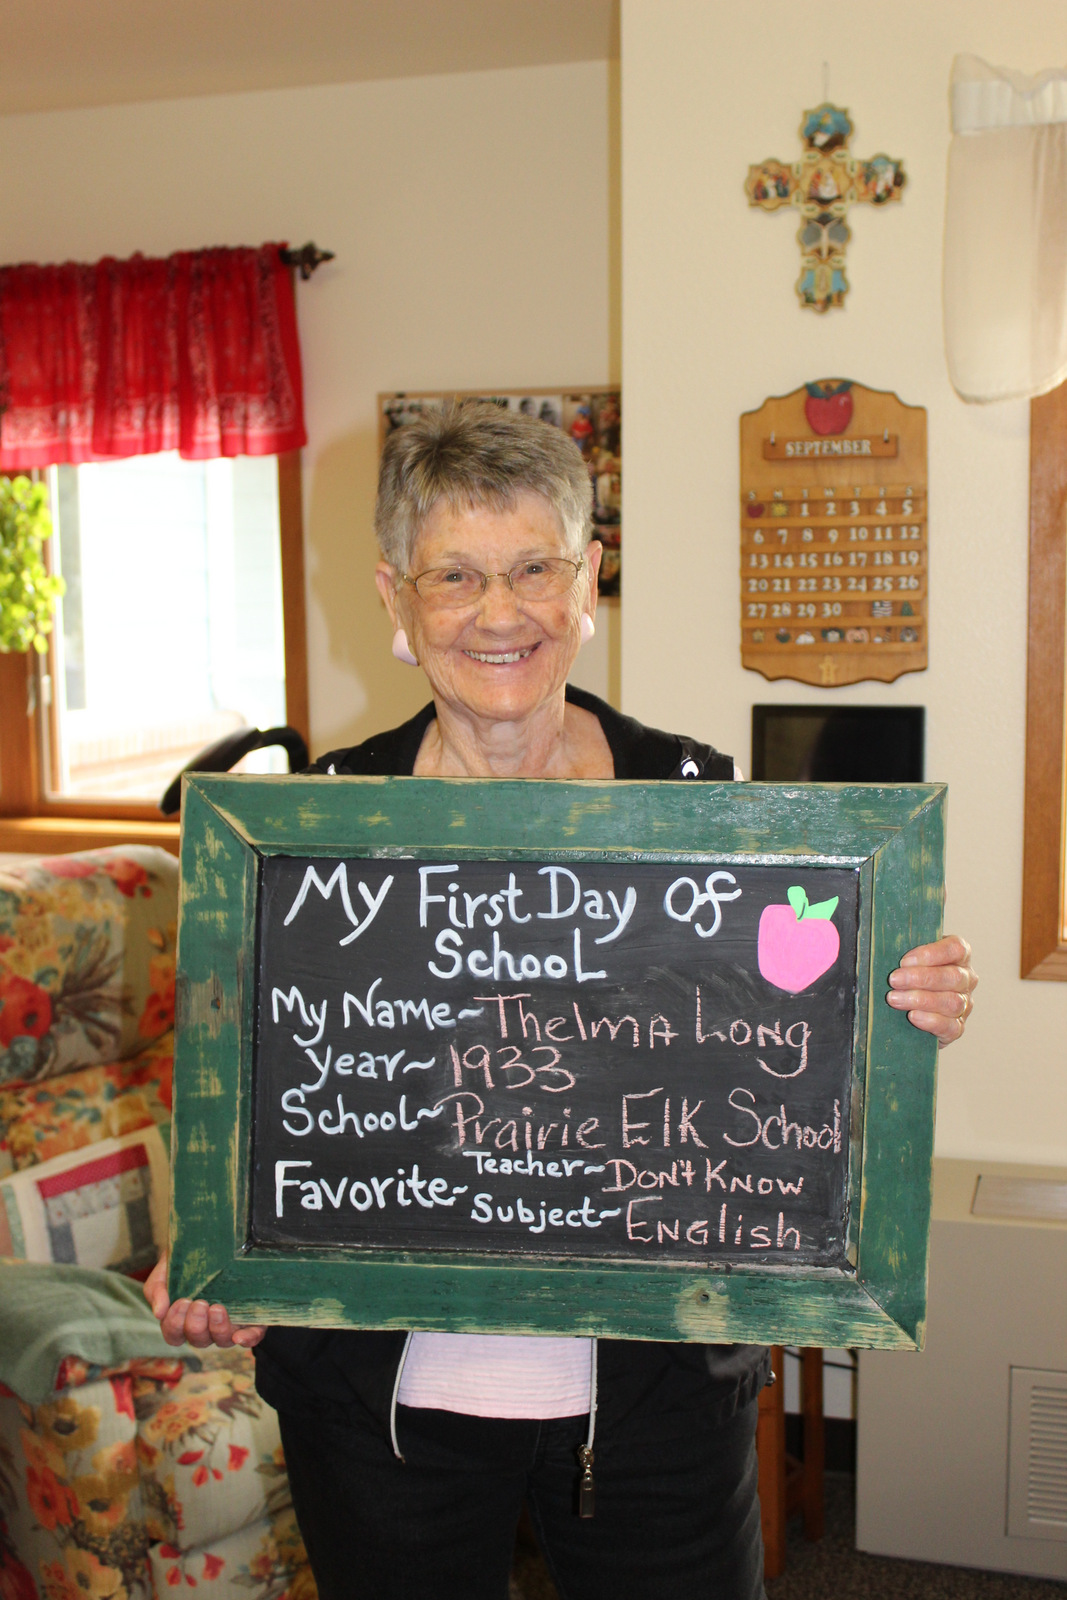 SEPTEMBER
S M T W T F S
1 2 3 4 5
6 7 8 9 10 11 12
13 14 15 16 17 18 19
20 21 22 23 24 25 26
27 28 29 30
My First Day Of
School
My Name~ Thelma Long
Year~ 1933
School~ Prairie Elk School
Favorite~ Teacher~ Don't Know
Subject~ English